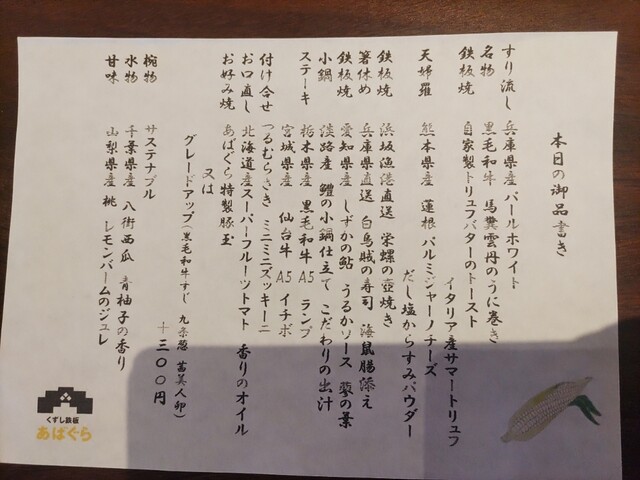 本日の御品書き
すり流し 兵庫県産 パールホワイト
名物 黒毛和牛 馬糞雲丹のうに巻き
鉄板焼 自家製トリュフバターのトースト
イタリア産サマートリュフ
天婦羅 熊本県産 蓮根 パルミジャーノチーズ
だし塩からすみパウダー
鉄板焼 浜坂漁港直送 栄螺の壺焼き
箸休め 兵庫県直送 白烏賊の寿司 海鼠腸添え
鉄板焼 愛知県産 しずかの鮎 うるかソース 蓼の葉
小鍋 淡路産 鱧の小鍋仕立て こだわりの出汁
ステーキ 栃木県産 黒毛和牛 A5 ランプ
宮城県産 仙台牛 A5 イチボ
付け合せ つるむらさき ミニミニズッキーニ
お口直し 北海道産スーパーフルーツトマト 香りのオイル
お好み焼 あばぐら特製豚玉
又は
グレードアップ(黒毛和牛すじ 九条葱 茜美人卵)
+三〇〇円
椀物 サステナブル
水物 千葉県産 八街西瓜 青柚子の香り
甘味 山梨県産 桃 レモンバームのジュレ
くずし鉄板
あばぐら